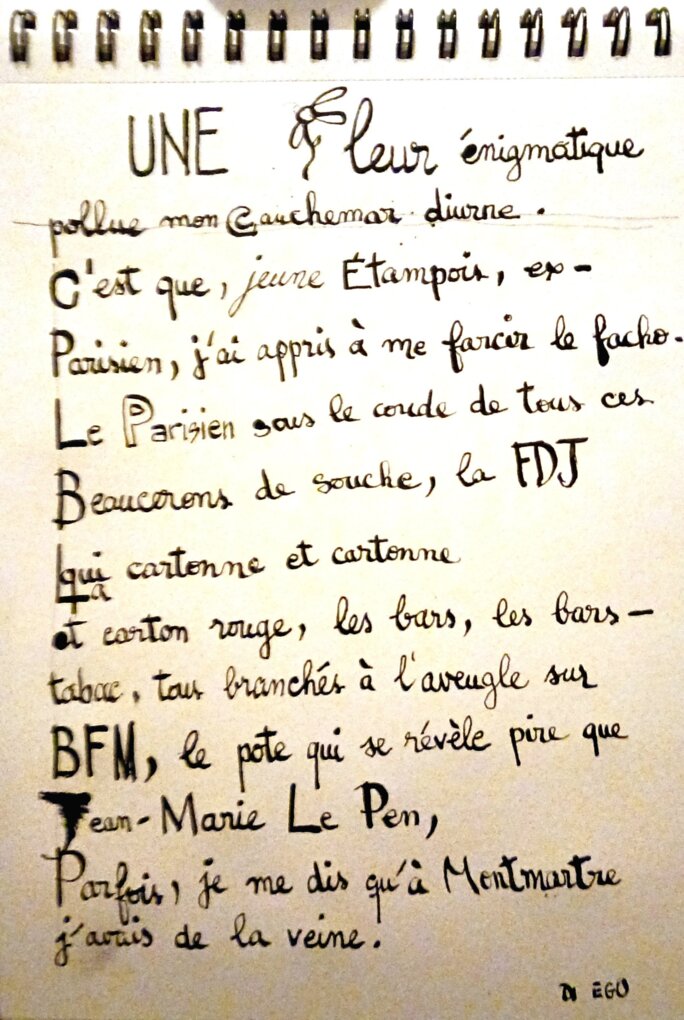 UNE Fleur énigmatique
pollue mon Cauchemar diurne.
C'est que, jeune Étampois, ex-
Parisien, j'ai appris à me farcir le facho.
Le Parisien sous le coude de tous ces
Beaucerons de souche, la FDJ
qui cartonne et cartonne
et carton rouge, les bars, les bars-
tabac, tous branchés à l'aveugle sur
BFM, le pote qui se révèle pire que
Jean-Marie Le Pen,
Parfois, je me dis qu'à Montmartre
j'avais de la veine.
EGO